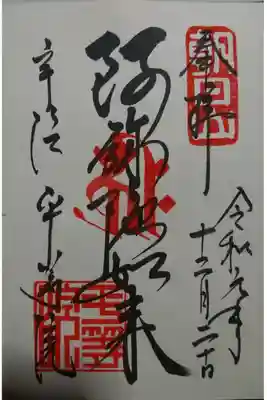 奉拝
朝日山
令和元年
十二月二十日
阿弥陀如来
宇治 平等院